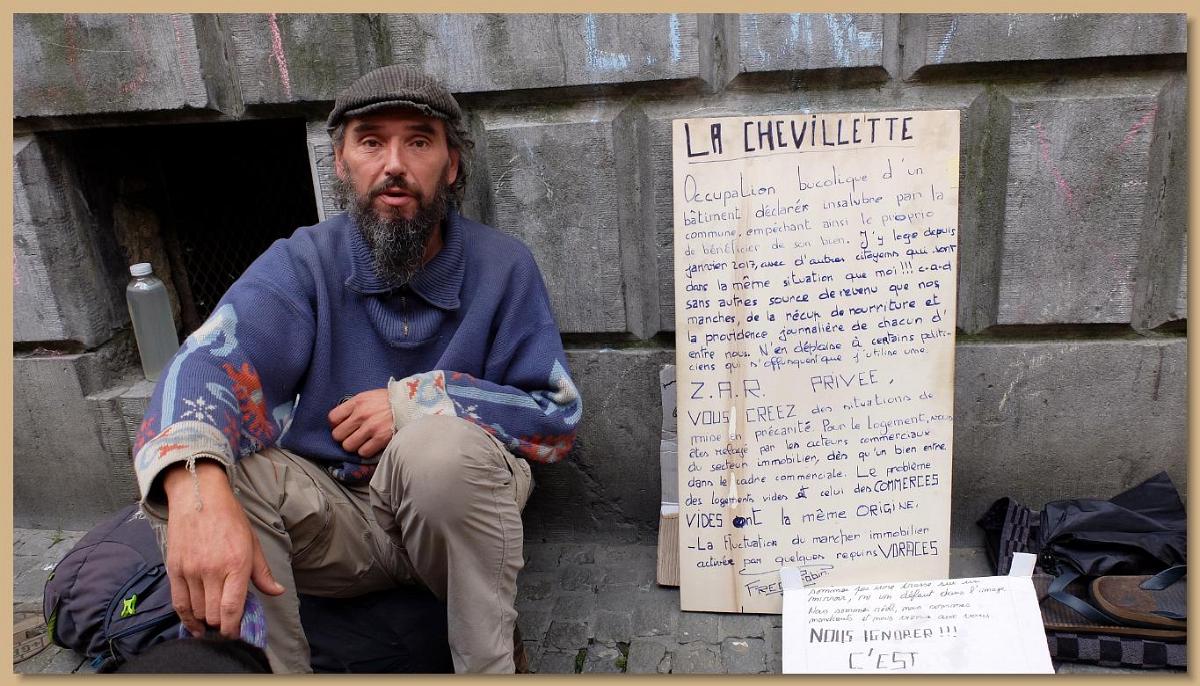 LA CHEVILLETTE
Occupation bucolique d'un
bâtiment déclarée insalubre par la
commune, empêchant ainsi le proprio
de bénéficier de son bien. J'y loge depuis
janvier 2017, avec d'autres citoyens qui sont
dans la même situation que moi!!! c-a-d
sans autres source de revenu que nos
manches, de la récup de nourriture et
la providence journalière de chacun d'
entre nous. N'en déplaise à certains politi-
ciens qui s'offusquent que j'utilise une.
Z.A.R. PRIVEE.
VOUS CREEZ des situations de
mise en précarité. Pour le logement, nous
êtes refusé par les acteurs commerciaux
du secteur immobilier, dès qu'un bien entre
dans le cadre commerciale. Le problème
des logements vides et celui des COMMERCES
VIDES ont la même ORIGINE.
- La fluctuation du marcher immobilier
activée par quelques requins VORACES
FREE Robin.
sommes pas une trace sur un
miroir, ni un défaut dans l'image.
Nous sommes réel, nous
et nous
NOUS IGNORER!!!
C'EST